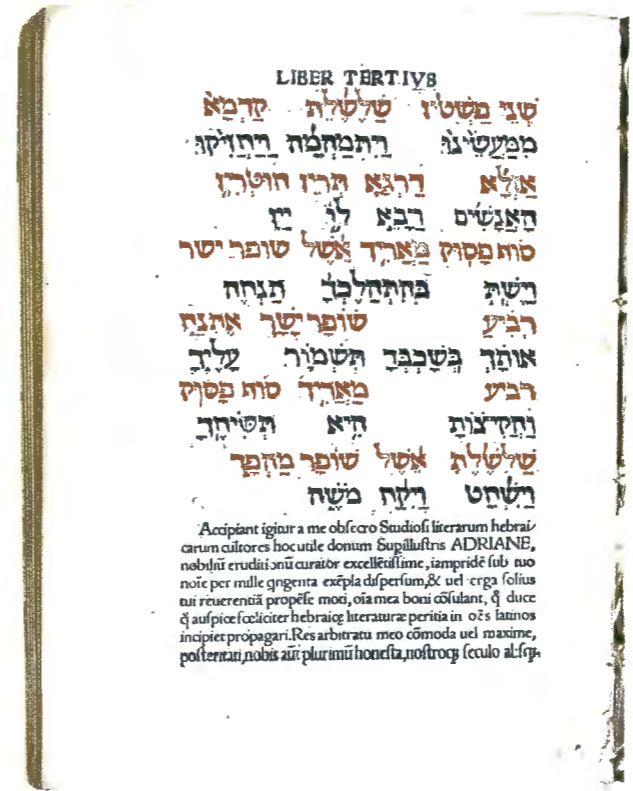 LIBER TERTIVS
שְׁנֵי פַּשְׁטִין שַׁלְשֶׁלֶת קַדְמָא
מִמַּעֲשֵׂינוּ וַיִּתְמַהְמָהּ וַיַּחֲזִיקוּ
אַזְלָא דַּרְגָּא תְּרֵין חוּטְרִין
הָאֲנָשִׁים רָבָא לוֹ יַיִן
סוֹף פָּסוּק מַאֲרִיךְ אֶשֶׁל שׁוֹפַר יָשָׁר
וַיֵּשְׁתְּ בְּהִתְהַלֶּכְךָ תַּנְחֶה
רְבִיעַ שׁוֹפַר יָשָׁר אֶתְנַח
אוֹתָךְ בְּשָׁכְבְּךָ תִּשְׁמוֹר עָלֶיךָ
רְבִיעַ מַאֲרִיךְ סוֹף פָּסוּק
וַהֲקִיצוֹתָ הִיא תְשִׂיחֶךָ
שַׁלְשֶׁלֶת אֶשֶׁל שׁוֹפַר מַהְפַּךְ
וַיִּשְׁחַט וַיִּקַּח מֹשֶׁה
Accipiant igitur a me obsecro Studiosi literarum hebrai
carum cultores hoc utile donum Supillustris ADRIANE,
nobiliũ eruditionũ curator excellẽtissime, iampridẽ sub tuo
noĩe per mille qngenta exẽpla dispersum, & uel erga solius
tui reuerentiã propẽse moti, oĩa mea boni cõsulant, ꝗ duce
ꝗ auspice fœliciter hebraicę literaturæ peritia in oẽs latinos
incipiet propagari. Res arbitratu meo cõmoda uel maxime,
posteritati, nobis aũt plurimũ honesta, nostroqꝫ seculo absqꝫ